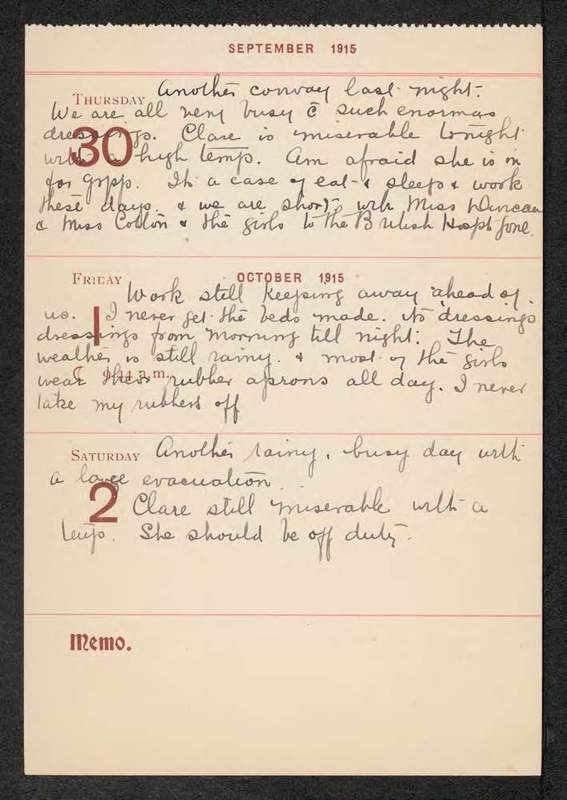 SEPTEMBER 1915
THURSDAY Another convoy last night.
We are all very busy c̄ such enormas
30 dressings. Clare is miserable tonight
with a high temp. Am afraid she is in
for gripp. Its a case of eat & sleep & work
these days. & we are short with Miss Duncan
& Miss Cotton & the girls to the British Hospt gone.
FRIDAY OCTOBER 1915
Work still keeping away ahead of
us. 1 I never get the beds made. Its dressings
dressings from morning till night. The
weather is still rainy. & most of the girls
☾ 9.44 a.m.
wear their rubber aprons all day. I never
take my rubbers off
SATURDAY Another rainy, busy day with
a large evacuation
2 Clare still miserable with a
temp. She should be off duty.
Memo.